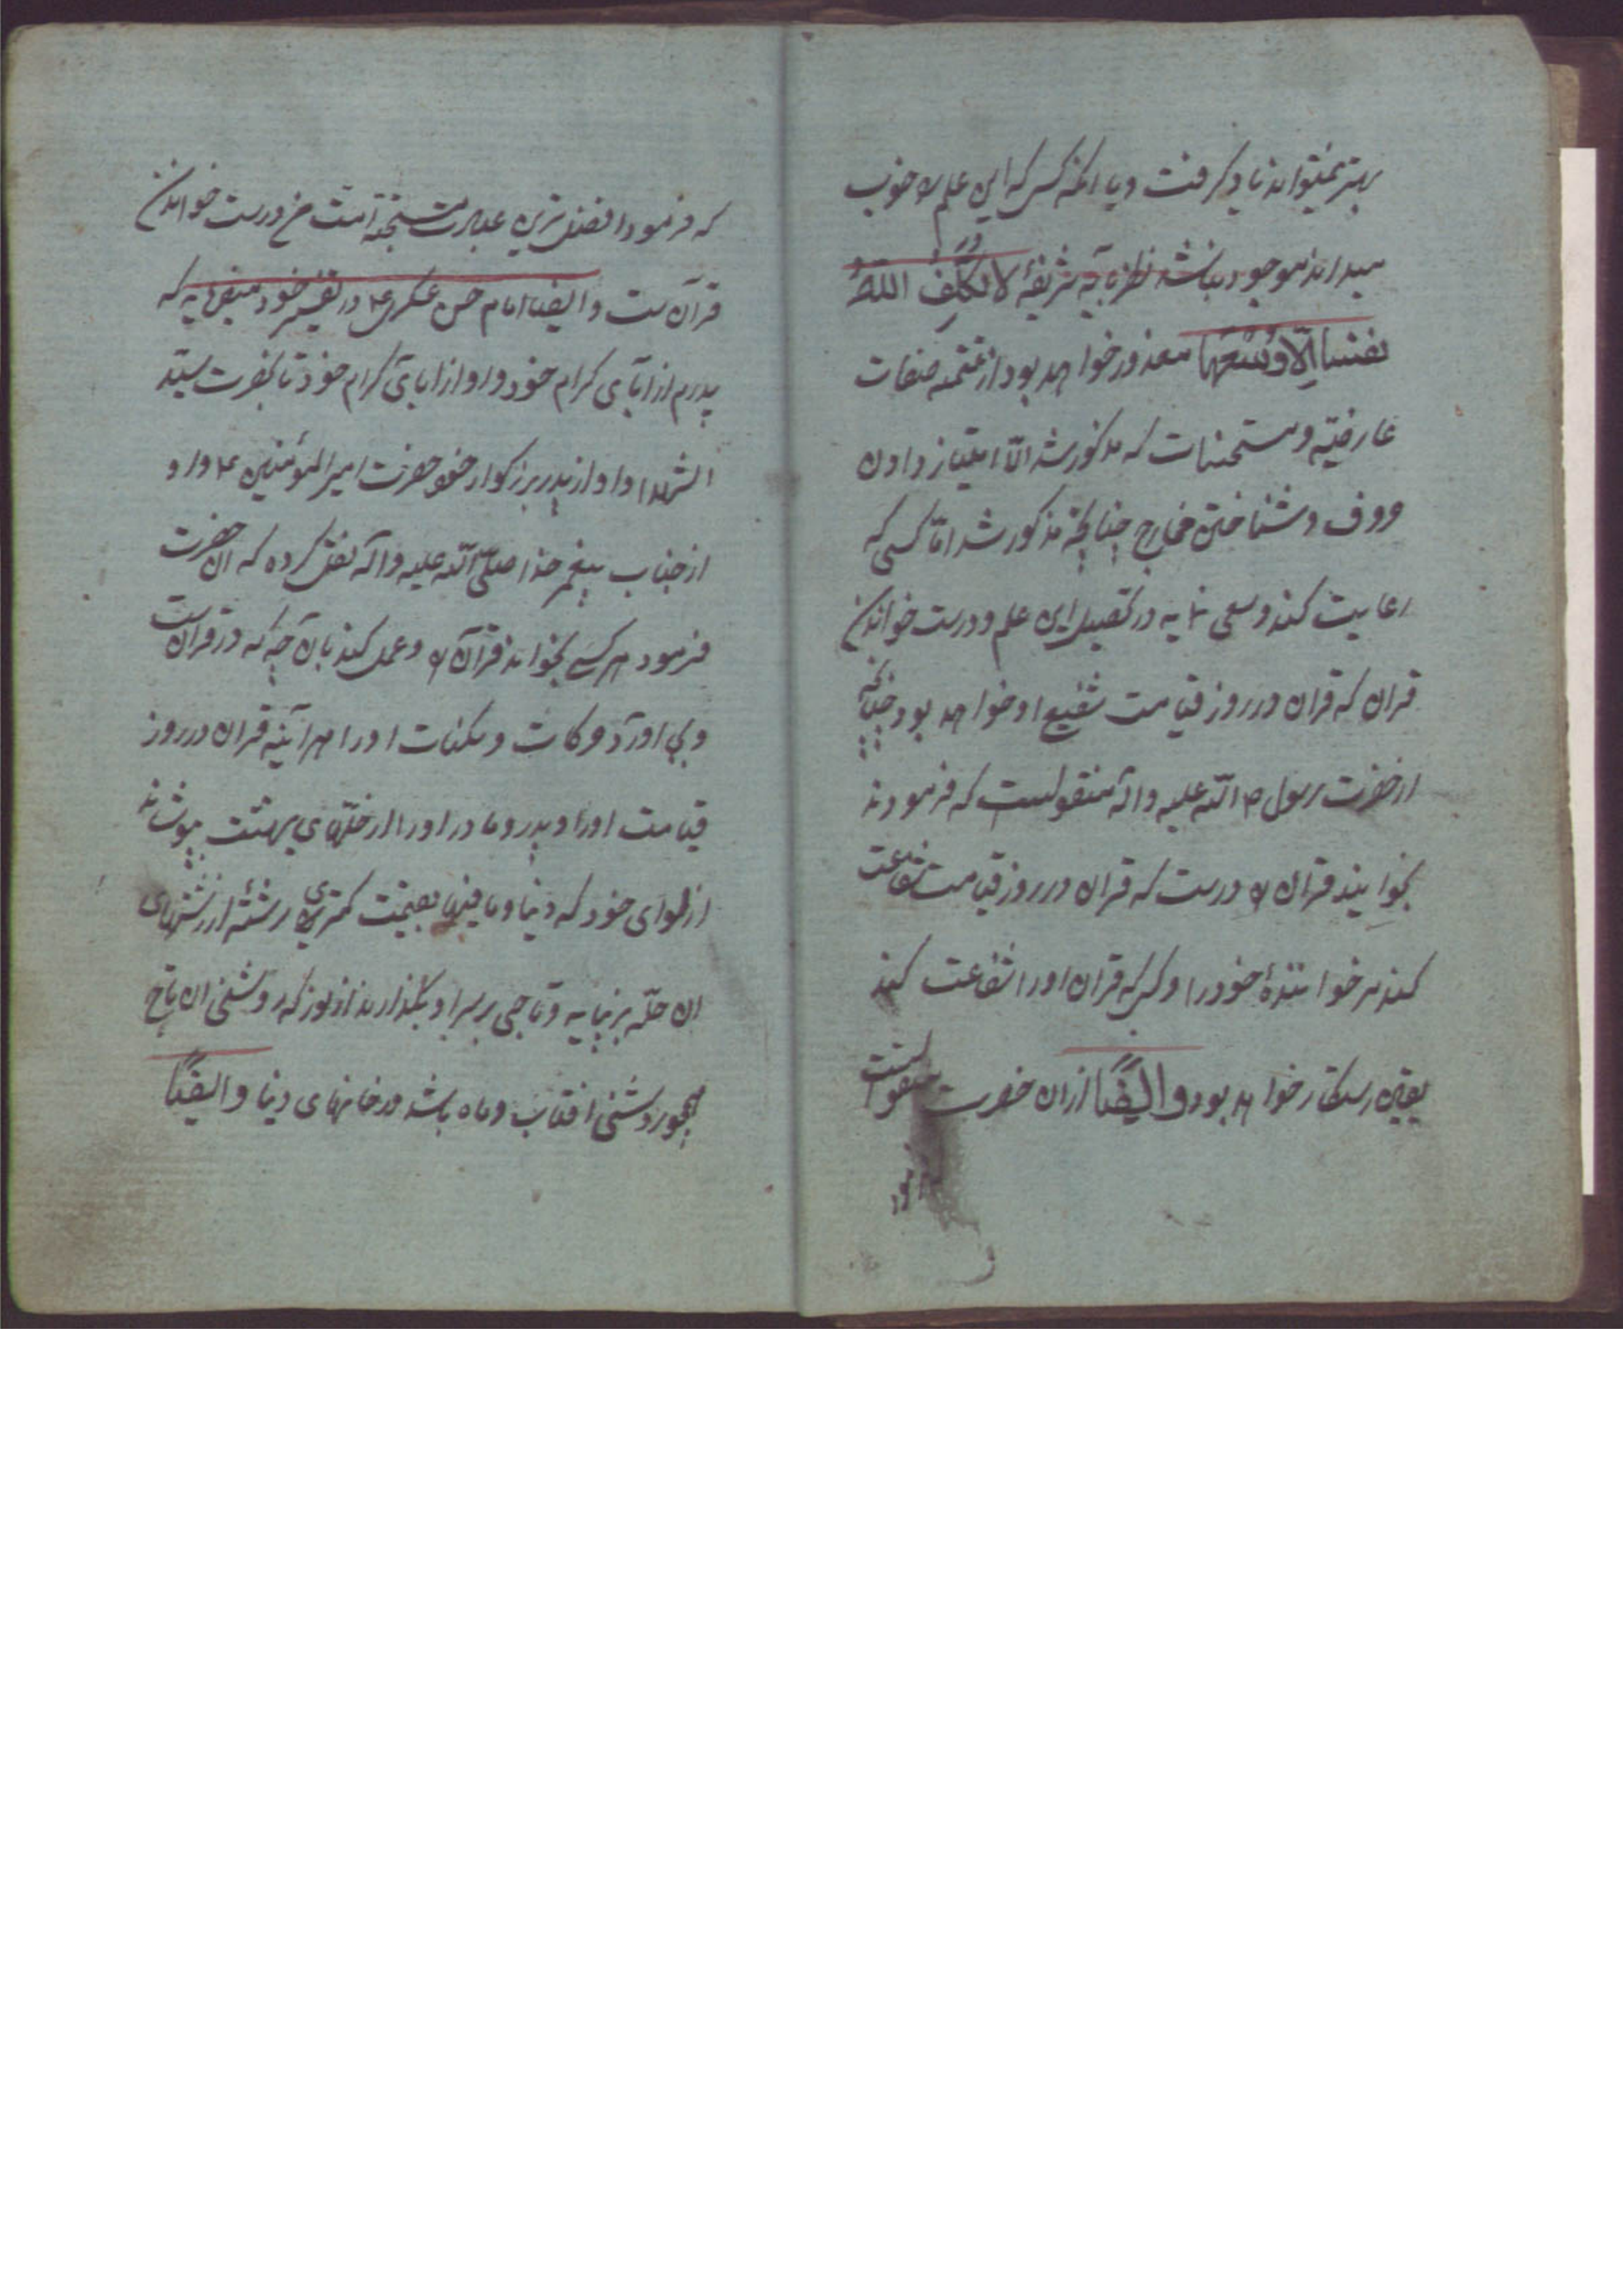 بهتر نمیتواند یاد کرفت و یا انکه کسی که این علم را خوب
میداند موجود نباشد نظر بآیه شریفهٔ لا یُکَلِّفُ اللّهُ
نفسًا اِلّا وُسْعَهَا معذور خواهد بود از تتمهٔ صفات
عارضیّه و مستحسنات که مذکور شد الّا امتیاز دادن
حروف و شناختن مخارج چنانچه مذکور شد امّا کسی که
رعایت کند و سعی نماید در تحصیل این علم و درست خواندن
قران که قران در روز قیامت شفیع او خواهد بود چنانچه
از حضرت رسول ص اللّه علیه و اله منقولست که فرمودند
بخوانید قران را درست که قران در روز قیامت شفاعت
کند مر خوانندهٔ خود را و کسی که قران او را شفاعت کند
یقین رستکار خواهد بود و ایضًا از ان حضرت منقول است
که فرمود افضل ترین عبادت امت من درست خواندن
قرآن ست و ایضا امام حسن عسکری ع در تفسیر خود میفرماید که
پدرم از آبای کرام خود و او از ابای کرام خود تا بحضرت سیّد
الشهدا و او از پدر بزرکوار خود حضرت امیر المؤمنین ع و او
از جناب پیغمبر خدا صلّی اللّه علیه و اله نقل کرده که ان حضرت
فرمود هر کسی بخواند قرآن را و عمل کند بان چه که در قرآن ست
و بجا اورد حرکات و سکنات او را هر آینه قران در روز
قیامت او را و پدر و مادر او را از حلّهای بهشت بپوشاند
از حلّهای خود که دنیا و ما فیها بقیمت کمترین رشتهٔ از رشتهای
ان حلّه برنیاید و تاجی بر سر او بکذارند از نور که روشنی ان تاج
همچو روشنی افتاب و ماه باشد در خانهای دنیا و ایضًا